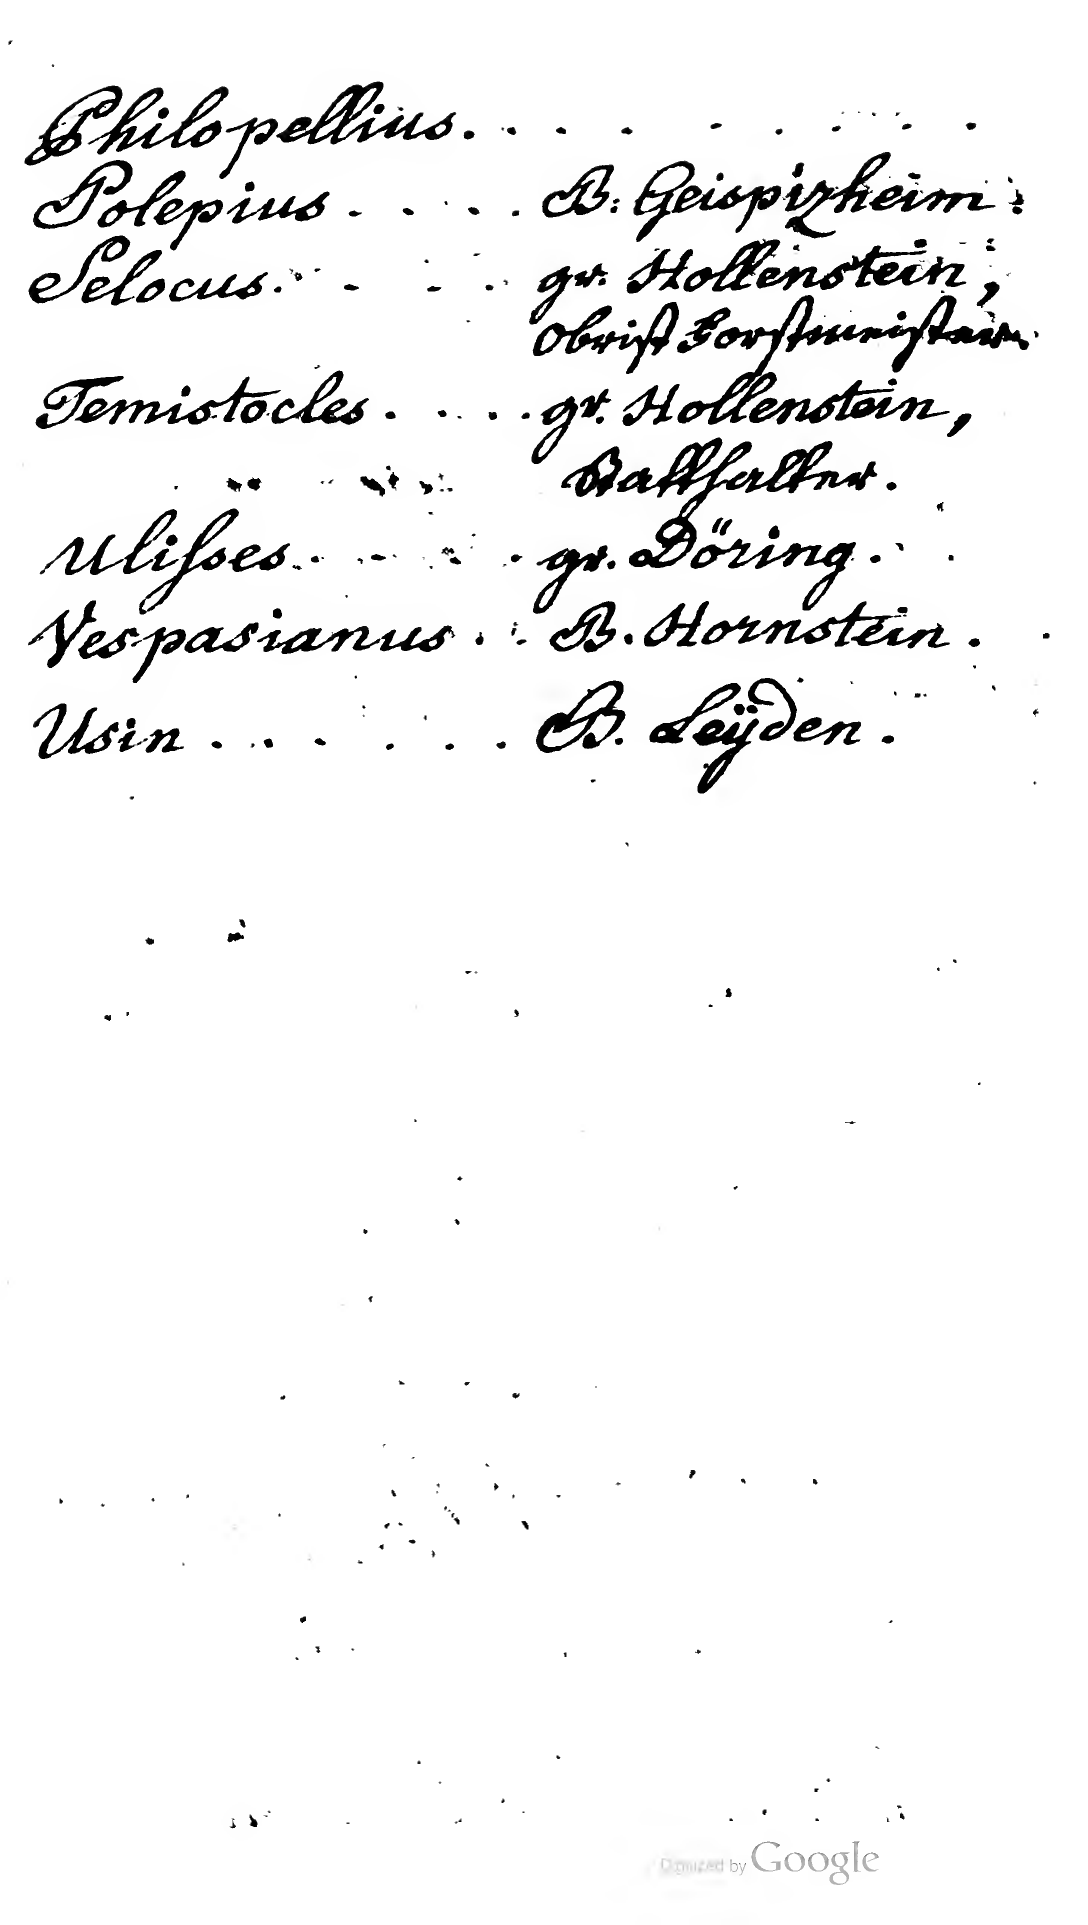 Philopellius. . . . . . . . .
Polepius . . . . . B. Geispizheim.
Selocus. . . . . gr. Hollenstein,
Obrist Forstmeister.
Temistocles . . . . gr. Hollenstein,
Statthalter.
Ulisses. . . . . gr. Döring.
Vespasianus . . . B. Hornstein.
Usin . . . . . . . B. Leÿden.
Digitized by Google